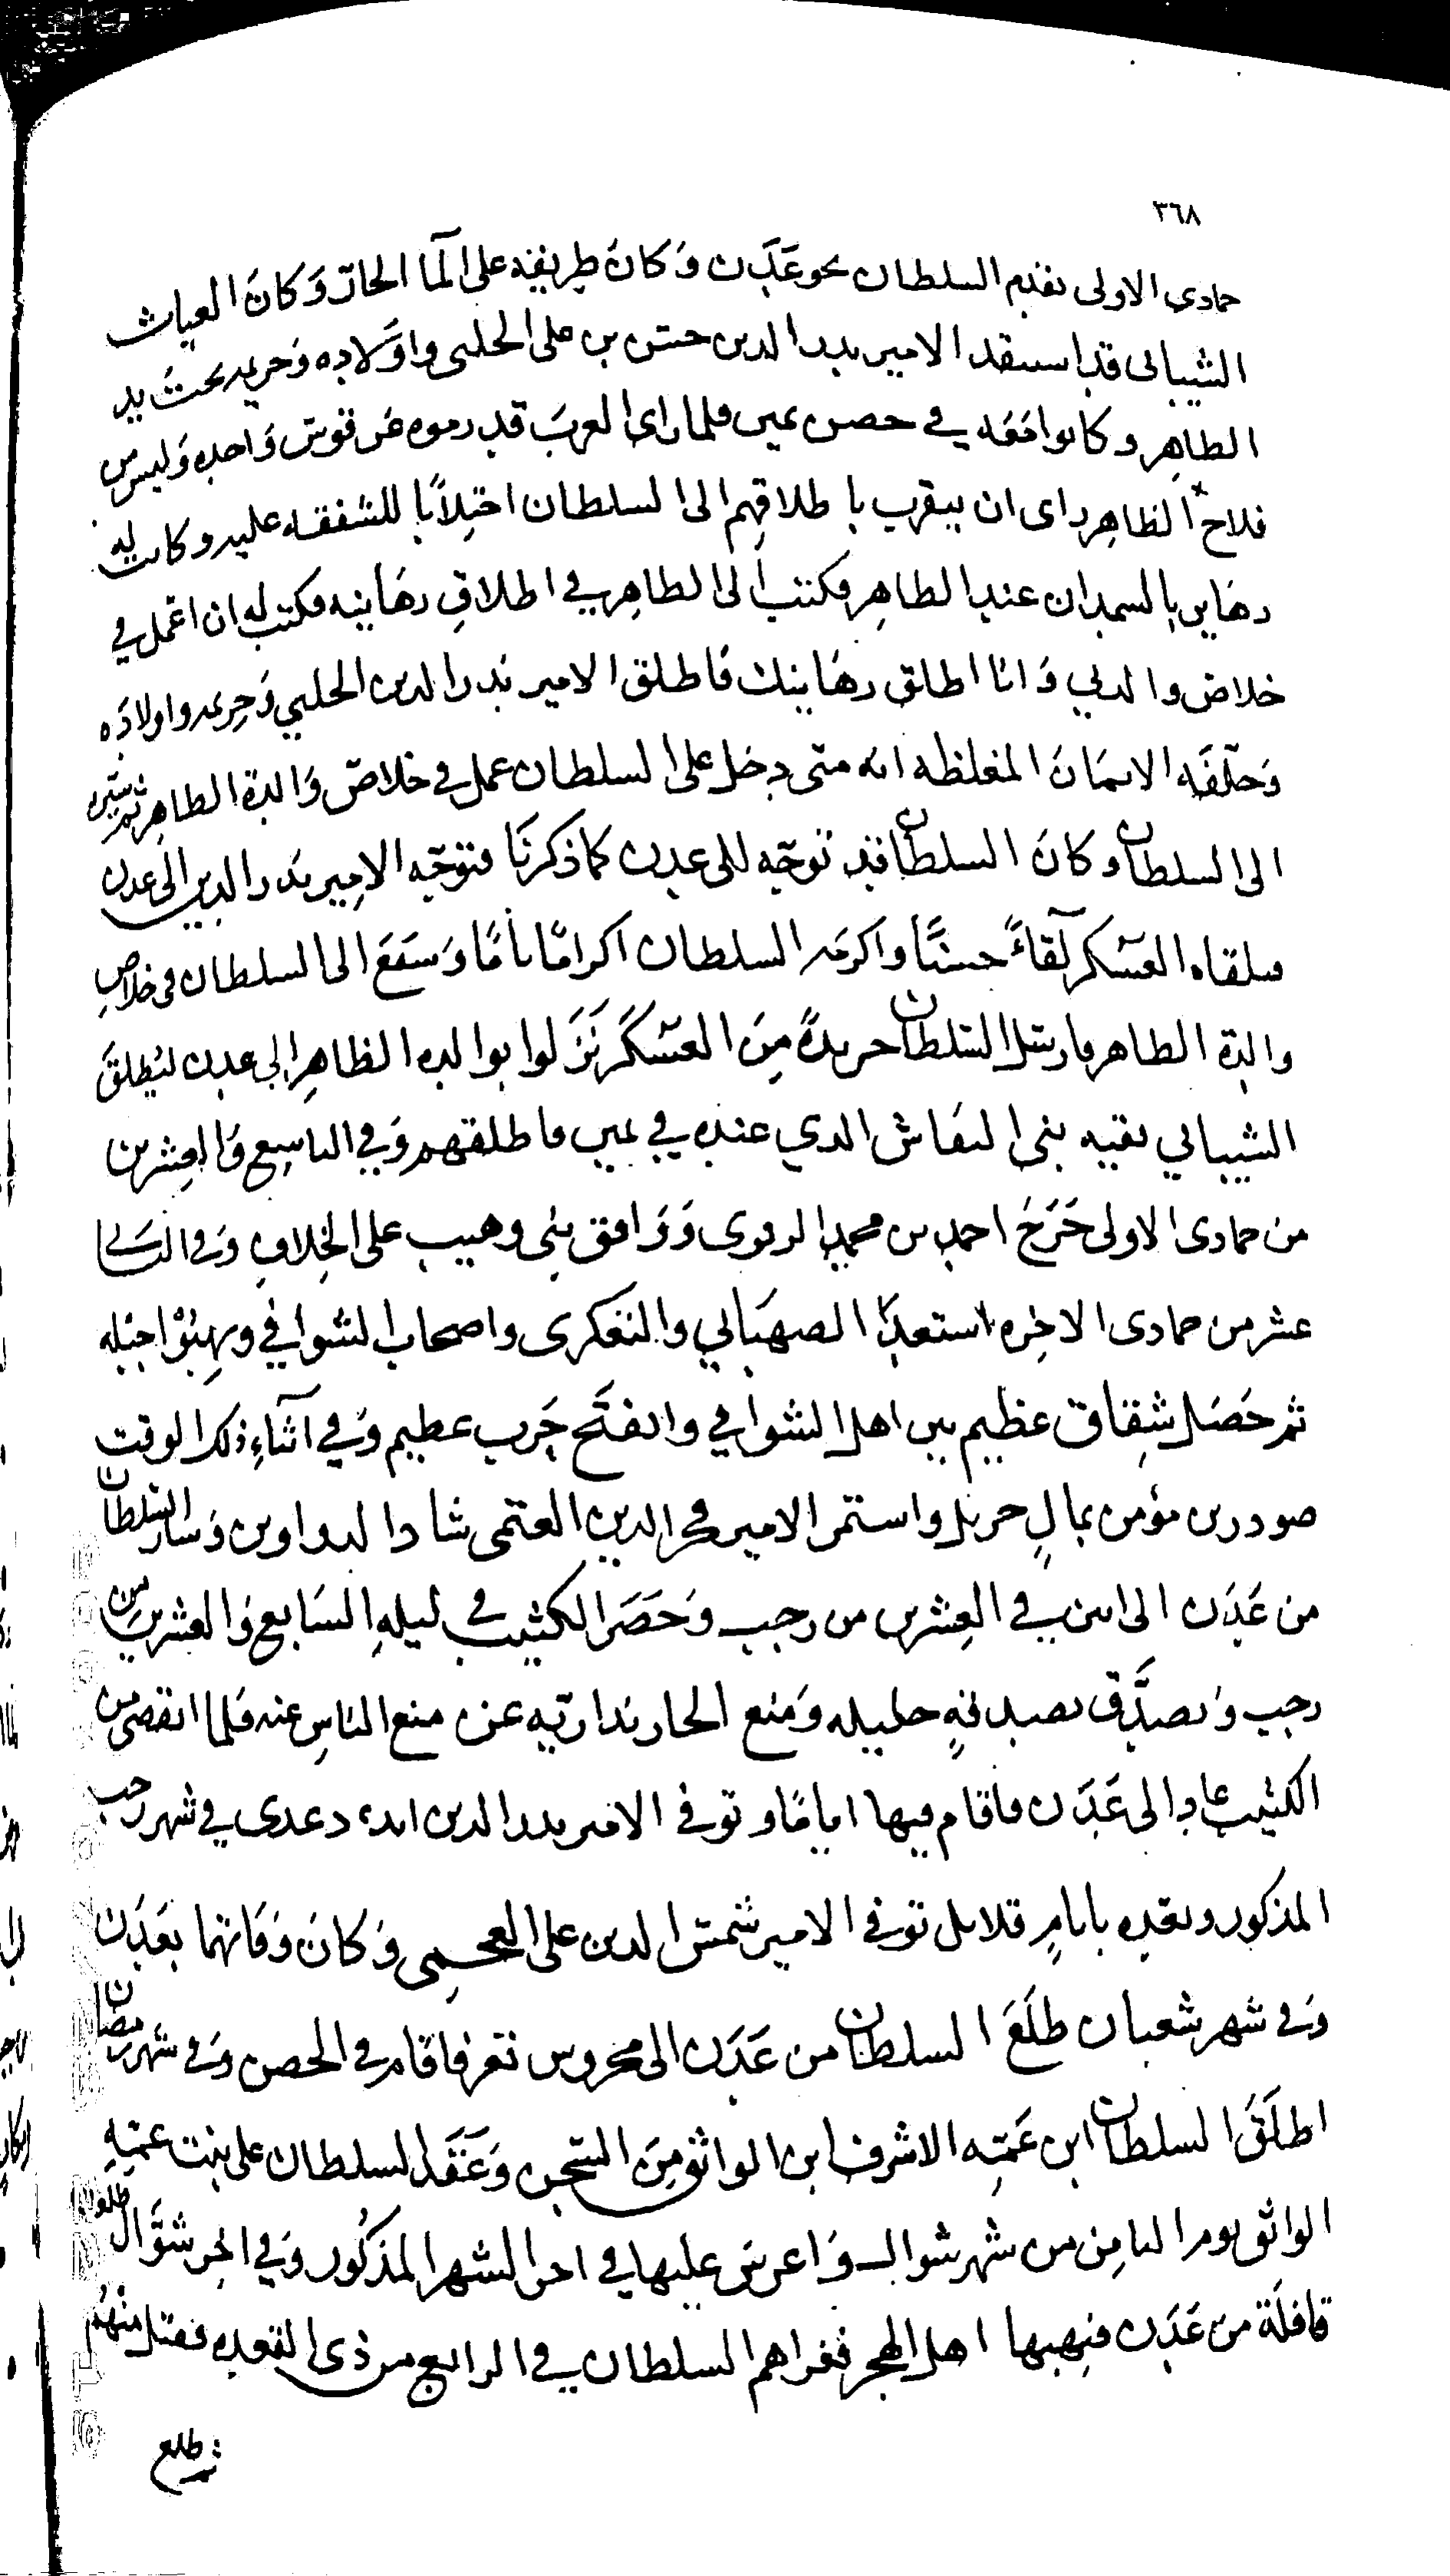 ٣٦٨
جمادى الاولى تقدم السلطان نحو عَدَن وَكانَ طريقه على الما الحارّ وَكانَ الغياث
الشيبانى قد استنقذ الامير بدر الدين حسن بن على الحلبى واوَلاده وَحريمه تحت يد
الظاهر وكانوا مَعَه في حصن يمين فلما راى العربَ قد رموه عَن قوسٍ وَاحده وَليس من
فلاح الظاهر راى ان يتقرب باطلاقهم الى السلطان اجتلابًا للشفقه عليه وكانت له
رهاين بالسمدان عند الظاهر فكتب الى الظاهر في اطلاقِ رهَاينه فكتب له ان اعْمل في
خلاص والدتي وَانا اطلق رهَاينك فاطلق الامير بدر الدين الحلبي وَحريمه واولادَه
وَحلّفَه الايمَانَ المغلظه انه متى دخل على السلطان عمل في خلاصِ وَالدة الظاهر ثم سَيّره
الى السلطان وكانَ السلطان قد توجّه الى عدن كما ذكرنَا فتوجّه الامير بدر الدين الى عدن
فتلقاه العَسْكر لقاءً حسنًا واكرمَه السلطان اكرامًا تامًا وَشفَعَ الى السلطان فى خلاصِ
والدة الظاهر فارسَل السّلطان جريدةً مِنَ العَسْكَر نَزَلوا بوالده الظاهِر الى عدن ليُطلقَ
الشيباني بقيه بنى النقاش الذي عنده في يمين فاطلقهم وَفي التاسع وَالعشرين
من جمادى الاولى خَرَجَ احمد بن محمد وَوَافق بنى وهيب على الخِلاف وَفى الثانى
عشر من جمادى الاخره استعدّا الصهبَاني والتعكرى واصحاب الشوافي ونهبُوْا جبْله
ثم حَصَل شِقاق عظيم بين اهل الشوافي وانفتَح حَرب عظيم وَفي اثناءِ ذلك الوقت
صودر بن مؤمن بمالٍ جزيل واستمر الامير فخر الدين شاد الدواوين وَسار السّلطان
من عَدَن الى ابين في العِشرين من رجب وَحَضَر الكثيب في ليلهِ السَابع وَالعشرين من
رجب وَتصدَّق بصدقهٍ جليله وَمنع عن منع الناس عنه فلما انقضى من
الكثيب عاد الى عَدَن فاقام فيها ايامًا وتوفى الامير بدر الدين في شهر رجب
المذكور وبعده بايامٍ قلايل توفى الامير شمسُ الدين على العجمى وَكانَ وَفاتهما بعَدَن
وَفى شهر شعبان طلَعَ السلطان من عَدَن الى محروس تعز فاقام في الحصن وَفى شهر رمضَان
اطلَقَ السلطان ابن عَمّه الاشرف ابن الواثق مِنَ السّجن وَعَقَد السلطان على بنت عمّهِ
الواثق يوم الثامِن من شهر شوال وَاعرسَ عليها في اخر الشهر المذكُور وَفي اخر شوّال طلعَت
قافلَة من عَدَن فنهبها اهل الهجر فغزاهم السلطان في الرابع من ذى القعده فقتل منهم
ثم طلع